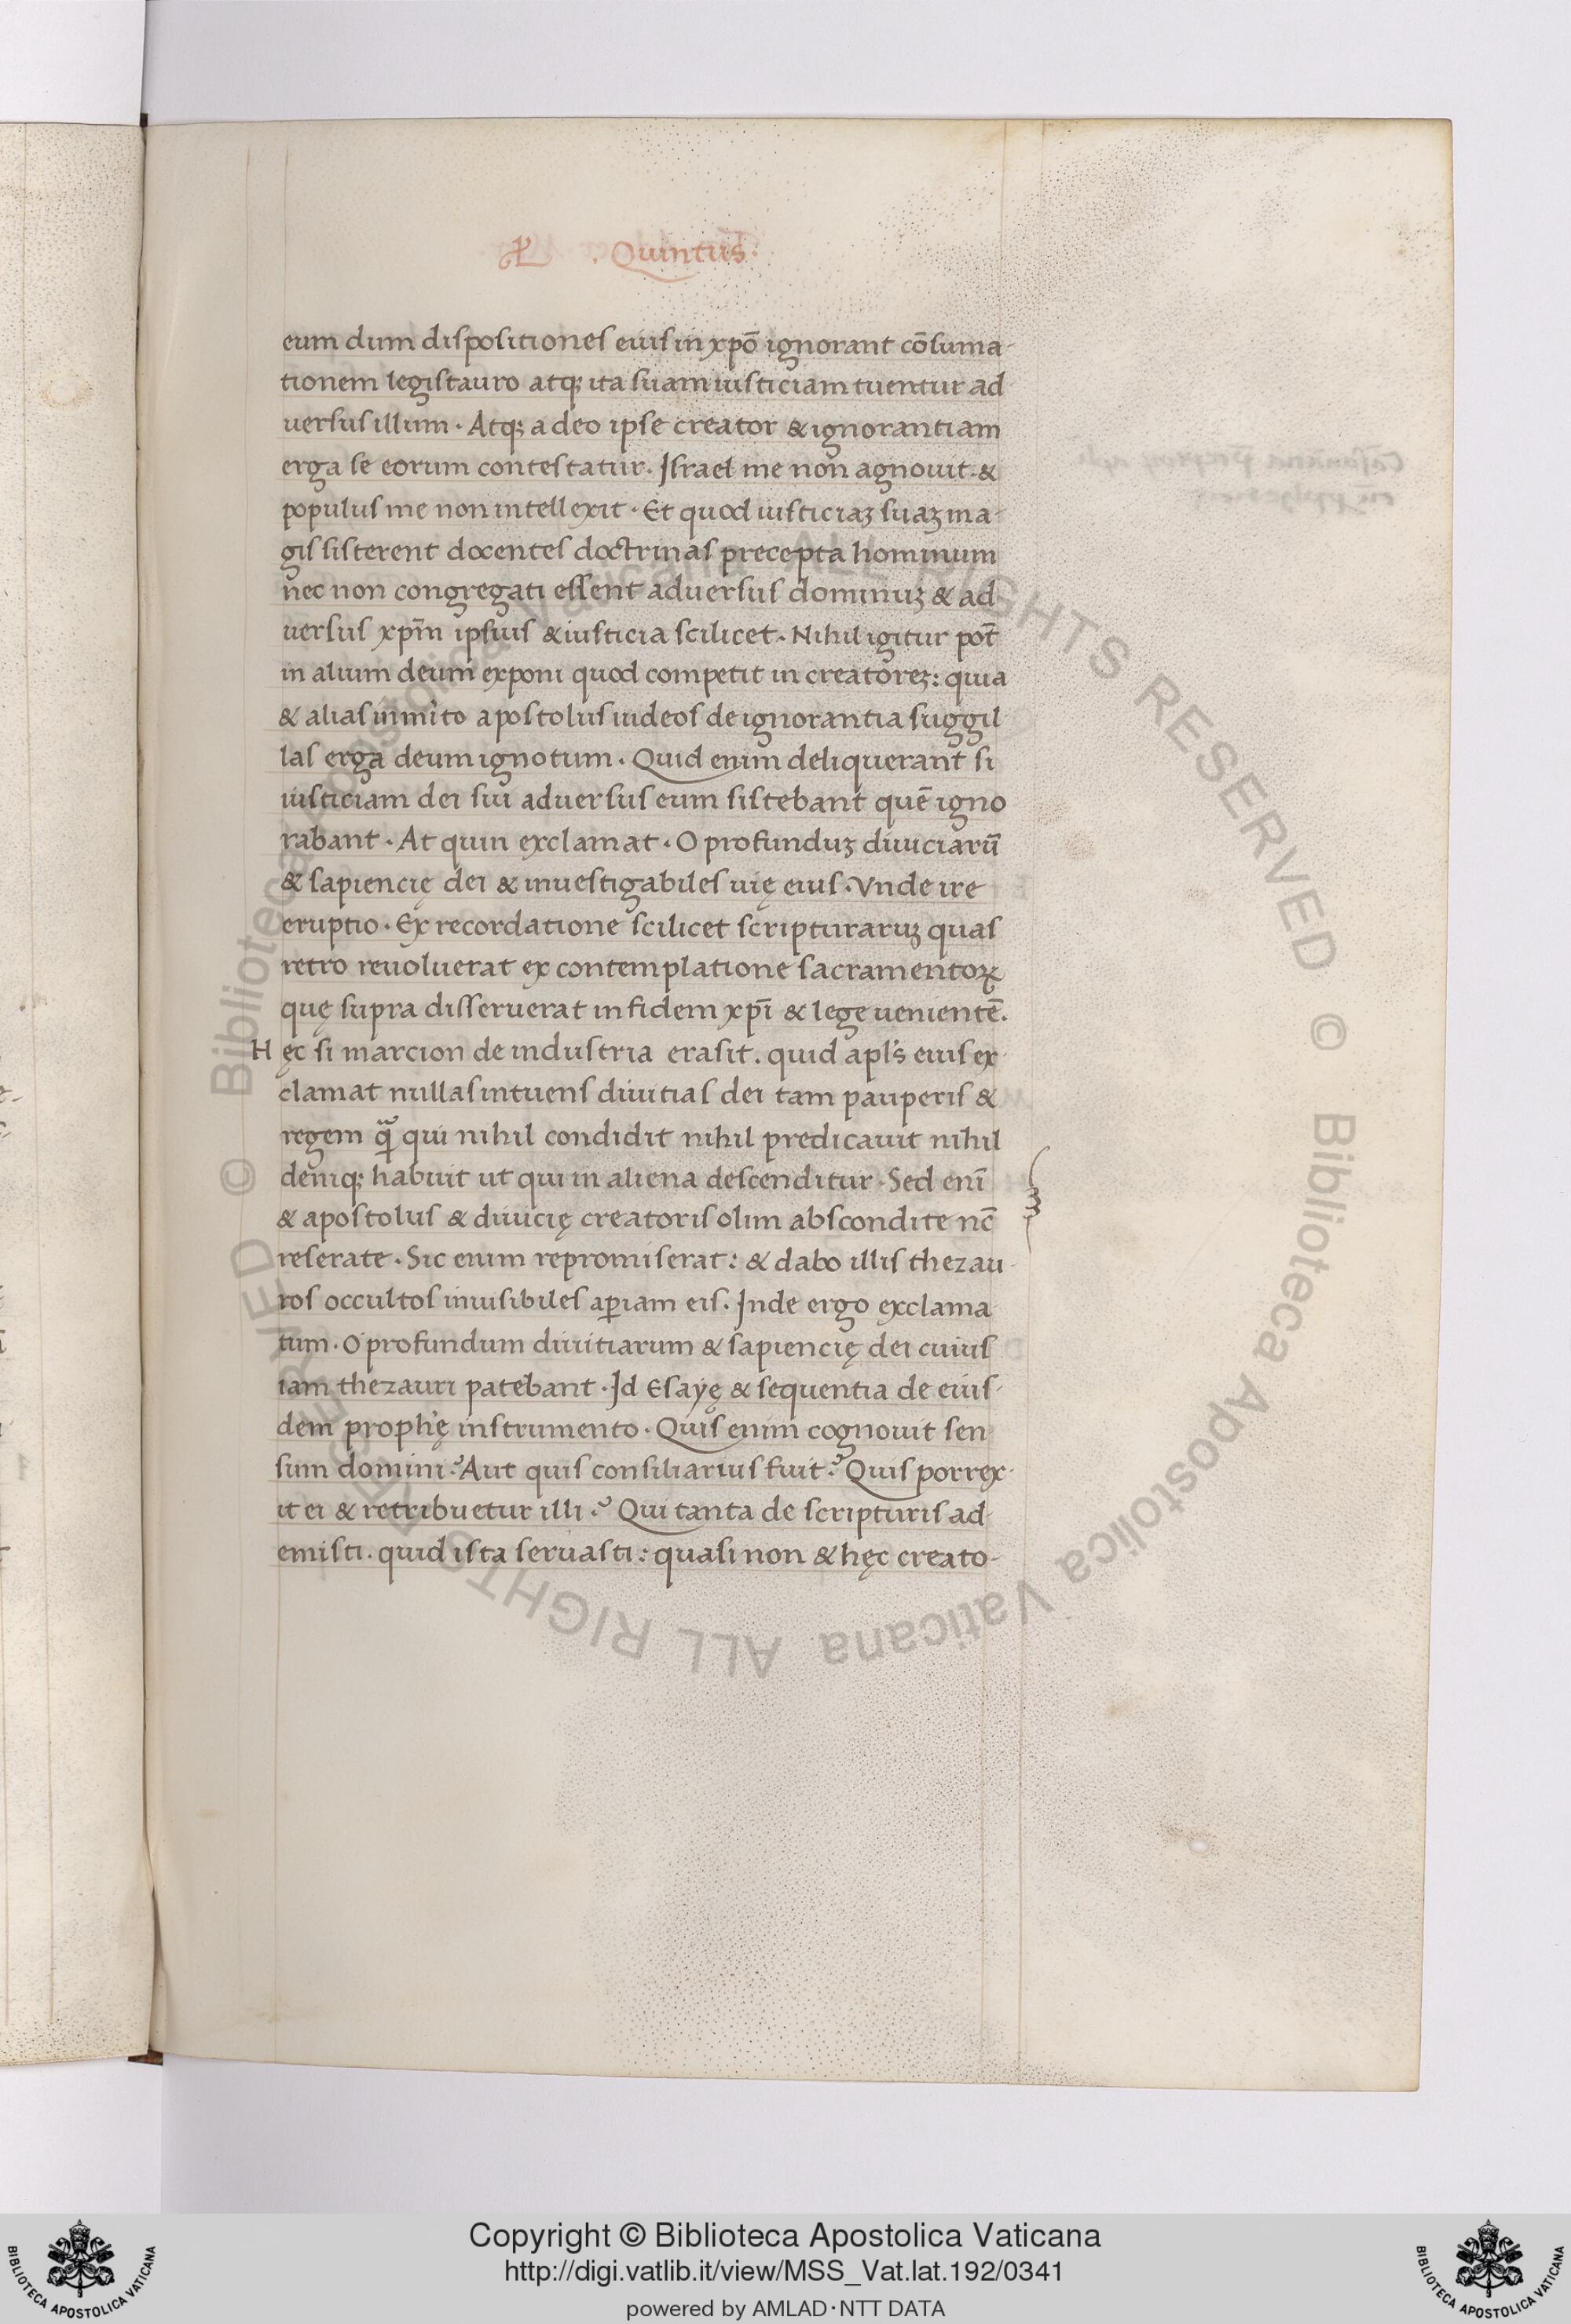 . Quintus.
eum dum dispositiones eius in xpō ignorant cōsuma-
tionem legistauro atq; ita suam iusticiam tuentur ad
uersus illum. Atq; adeo ipse creator & ignorantiam
erga se eorum contestatur. Israel me non agnouit. &
populus me non intellexit. Et quod iusticiaʒ suaʒ ma-
gis sisterent docentes doctrinas precepta hominum
nec non congregati essent aduersus dominuʒ & ad-
uersus xpm̄ ipsius & iusticia scilicet. Nihil igitur pot̄
in alium deum exponi quod competit in creatoreʒ: quia
& alias inmīto apostolus iudeos de ignorantia suggil
las erga deum ignotum. Quid enim deliquerant si
iusticiam dei sui aduersus eum sistebant quē igno
rabant. At quin exclamat. O profunduʒ diuiciarū
& sapiencię dei & inuestigabiles uię eius. Vnde ire
eruptio. Ex recordatione scilicet scripturaruʒ quas
retro reuoluerat ex contemplatione sacramentoꝝ
quę supra disseruerat in fidem xpī & lege uenientē.
Hęc si marcion de industria erasit. quid apl's eius ex-
clamat nullas intuens diuitias dei tam pauperis &
regem qͣ qui nihil condidit nihil predicauit nihil
deniq; habuit ut qui in aliena descenditur. Sed enī
& apostolus & diuicię creatoris olim abscondite nc̄
reserate. Sic enim repromiserat: & dabo illis thezau-
ros occultos inuisibiles aꝑiam eis. Inde ergo exclama
tum. O profundum diuitiarum & sapiencię dei cuius
iam thezauri patebant. Id Esayę & sequentia de eius-
dem proph'ę instrumento. Quis enim cognouit sen
sum domini? Aut quis consiliarius fuit? Quis porrex-
it ei & retribuetur illi? Qui tanta de scripturis ad-
emisti. quid ista seruasti: quasi non & hęc creato-
© Biblioteca Apostolica Vaticana ALL RIGHTS RESERVED © Biblioteca Apostolica Vaticana ALL RIGHTS RESERVED
Copyright © Biblioteca Apostolica Vaticana
http://digi.vatlib.it/view/MSS_Vat.lat.192/0341
powered by AMLAD·NTT DATA
BIBLIOTECA APOSTOLICA VATICANA
BIBLIOTECA APOSTOLICA VATICANA